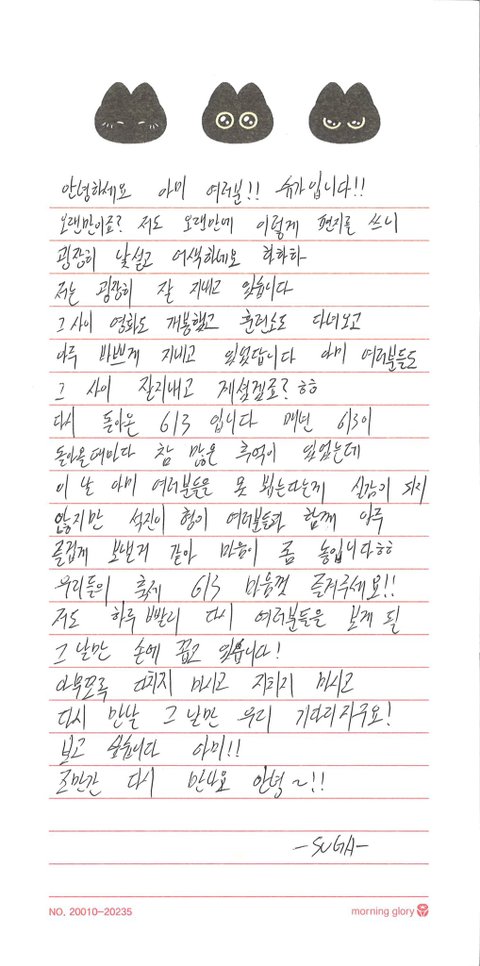 안녕하세요 아미 여러분!! 슈가입니다!!
오랜만이죠? 저도 오랜만에 이렇게 편지를 쓰니
굉장히 낯설고 어색하네요 하하하
저는 굉장히 잘 지내고 있습니다
그 사이 영화도 개봉했고 훈련소도 다녀오고
아주 바쁘게 지내고 있었답니다 아미 여러분들도
그 사이 잘지내고 계셨겠죠? ㅎㅎ
다시 돌아온 6/3 입니다 매년 6/3이
돌아올때마다 참 많은 추억이 있었는데
이 날 아미 여러분들을 못 뵙는다는게 실감이 되지
않지만 석진이 형이 여러분들과 함께 아주
즐겁게 보낼거 같아 마음이 좀 놓입니다ㅎㅎ
우리들의 축제 6/3 마음껏 즐겨주세요!!
저도 하루 빨리 다시 여러분들을 보게 될
그 날만 손에 꼽고 있습니다!
아무쪼록 다치지 마시고 지치지 마시고
다시 만날 그 날만 우리 기다리자구요!
보고 싶습니다 아미!!
조만간 다시 만나요 안녕~!!
-SUGA-
NO. 20010-20235 morning glory